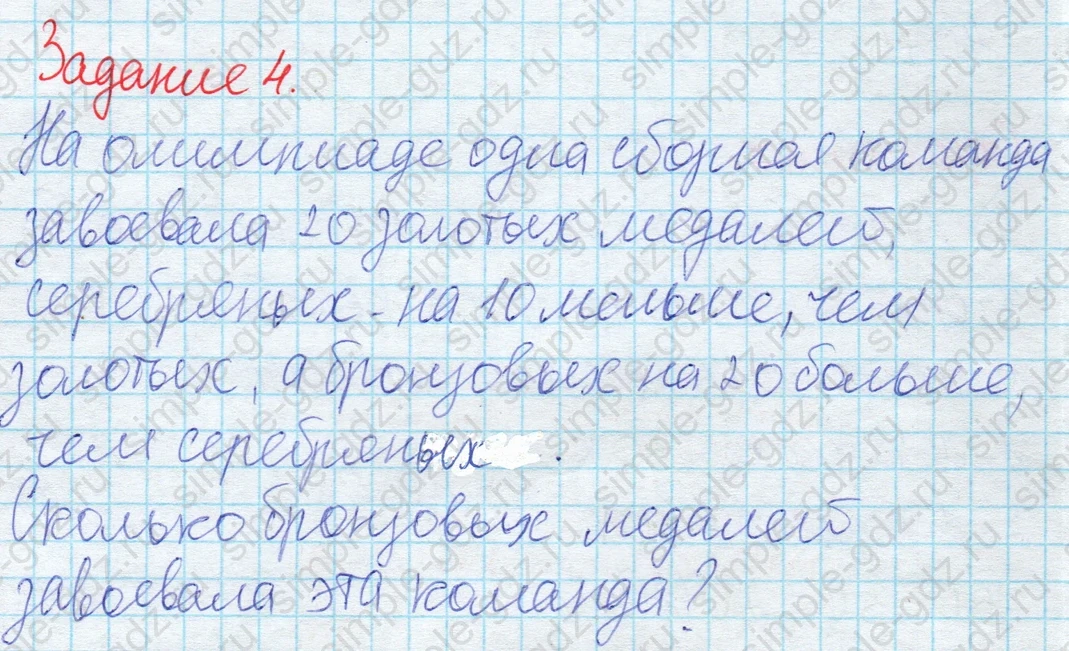 Задание 4.
На олимпиаде одна сборная команда
завоевала 20 золотых медалей,
серебряных - на 10 меньше, чем
золотых, а бронзовых на 20 больше,
чем серебряных.
Сколько бронзовых медалей
завоевала эта команда?
simple-gdz.ru